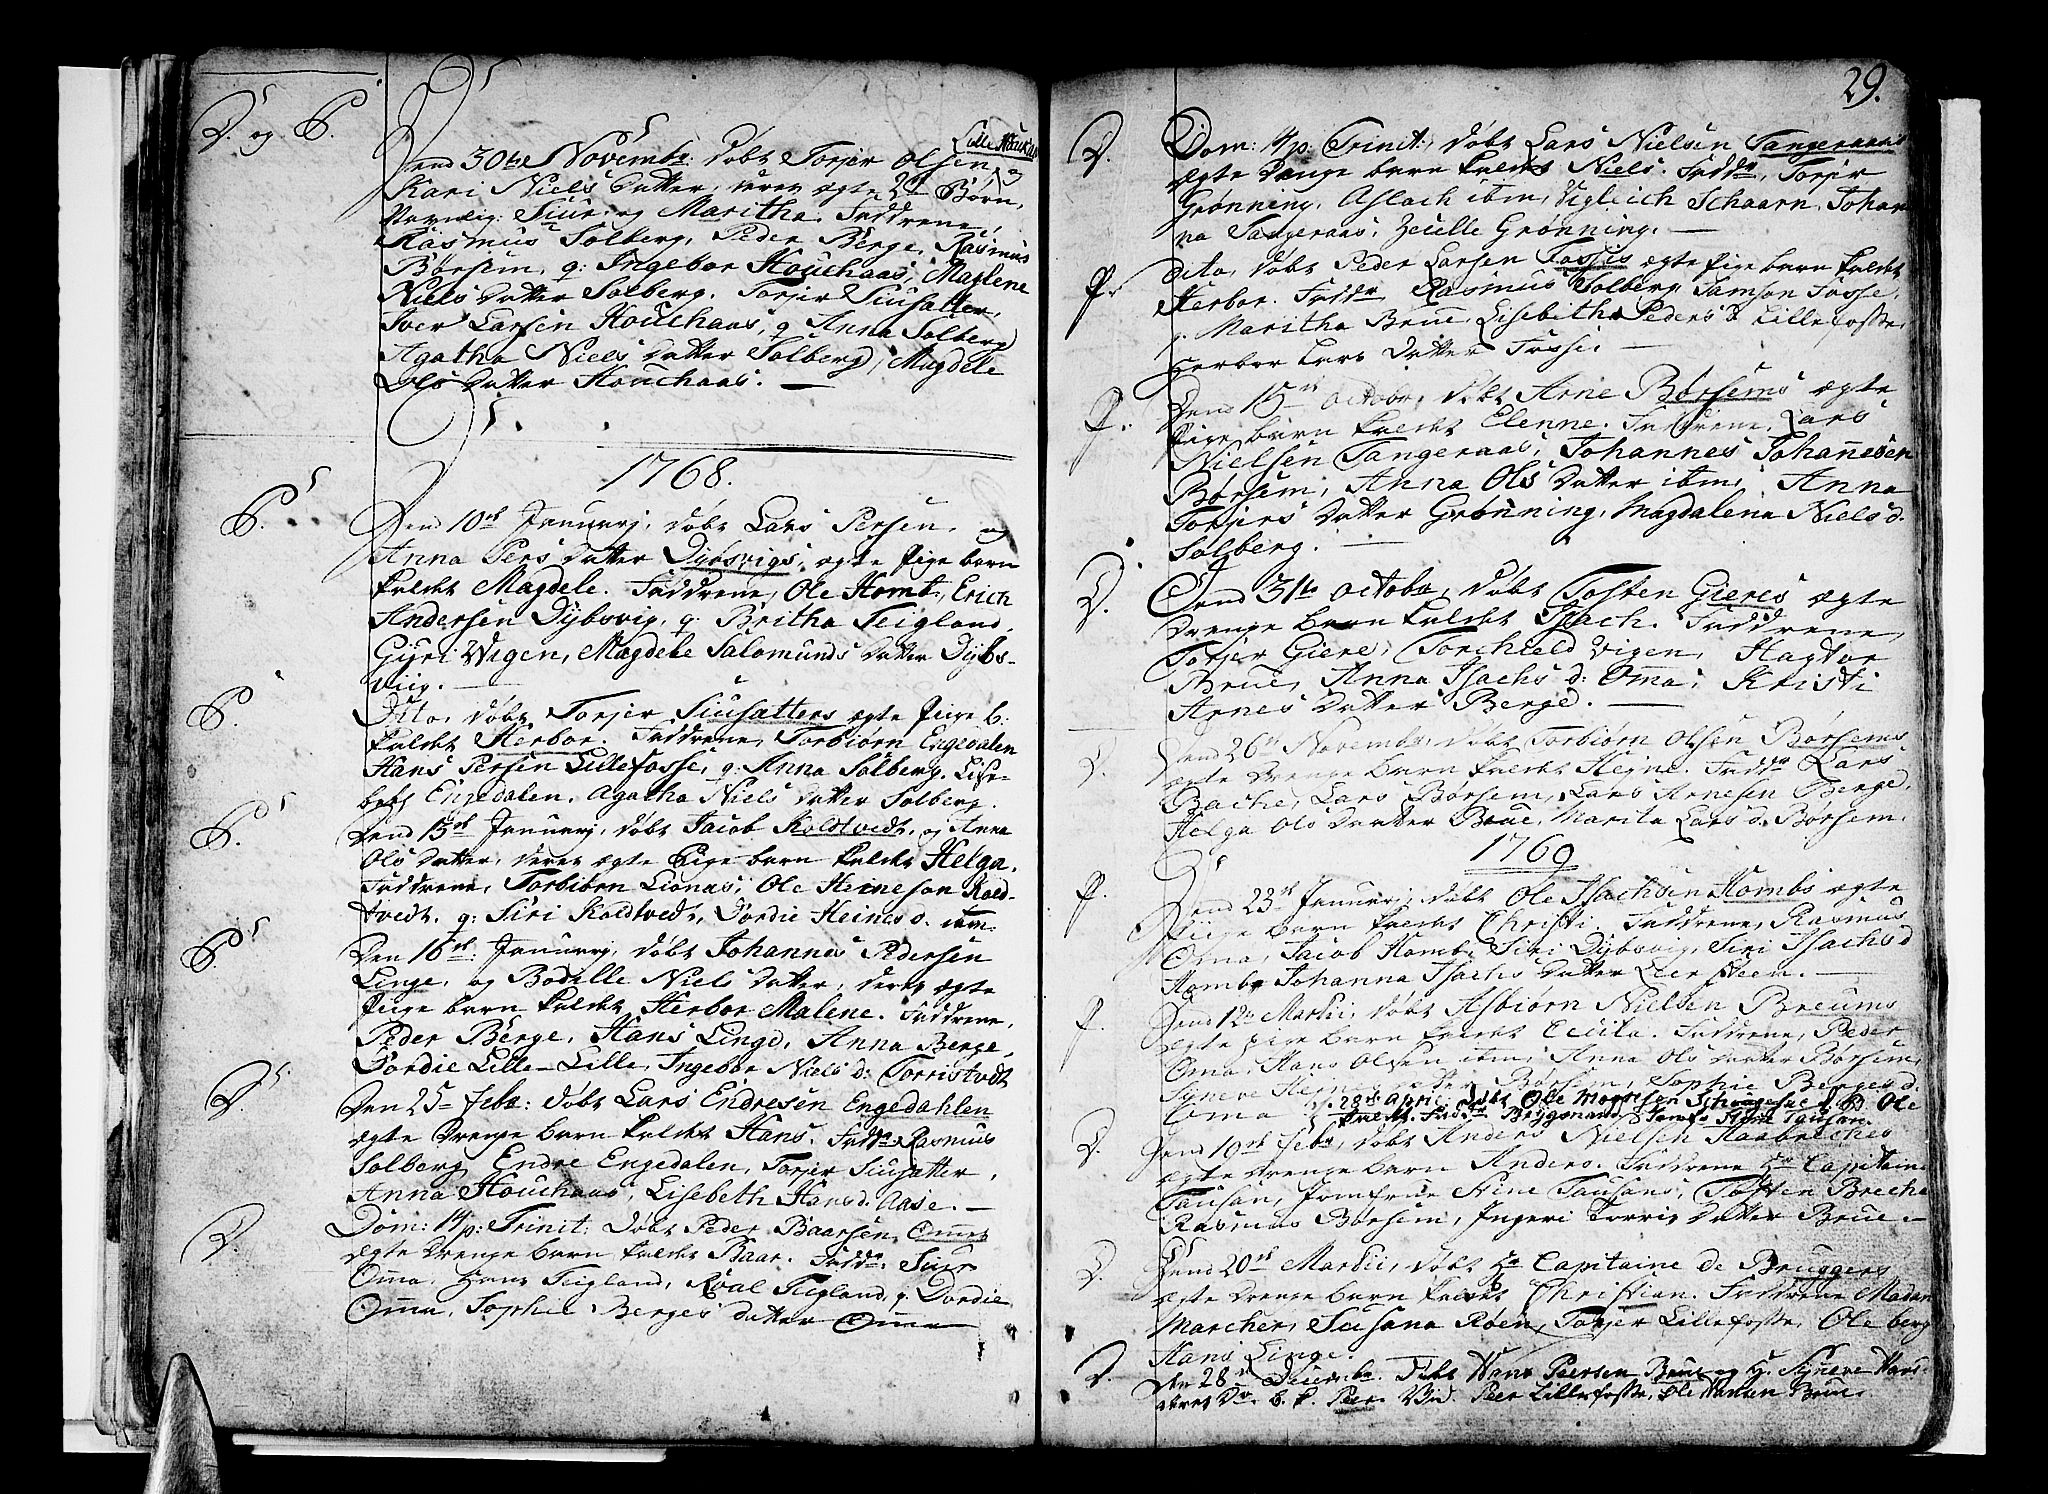 D. og P.
Lille Houkaas
Dend 30te Novembr: døbt Torjer Olsen, og
Kari Niels Datter, deres ægte 2de Børn,
Navnlig: Siur, og Maritha. Faddrene,
Rasmus Solberg, Peder Berge, Rasmus
Børsem, q: Ingebor Houchaas, Maglene
Niels Datter Solberg. Torjer Siusatter,
Iver Larsen Houchaas, q Anna Solberg
Agatha Niels Datter Solberg, Magdele
Ols Datter Houchaas. —
1768.
P.
Dend 10de Januarj, døbt Lars Persen, og
Anna Pers Datter Dybsvigs, ægte Pige barn
kaldet Magdele. Faddrene, Ole Homb, Erich
Andersen Dybsvig, q: Britha Teigland,
Gyri Wigen, Magdele Salomunds Datter Dybs-
viig. —
P.
Dito, døbt Torjer Siusatters ægte Pige b:
kaldet Herbor. Faddrene, Torbiørn Engedalen
Hans Persen Lillefosse, q: Anna Solberg. Lise-
beth Engedalen. Agatha Niels Datter Solberg.
P.
Dend 15de Januarj, døbt Jacob Koldtvedt, og Anna
Ols Datter, deres ægte Pige barn kaldet Helga.
Faddrene, Torbiørn Lionas, Ole Heineson Kold-
tvedt. q: Siri Koldtvedt, Dordie Heines d. ibm.
P.
Den 16de: Januarj, døbt Johannes Pedersen
Linge, og Bodille Niels Datter, deres ægte
Pige barn kaldet Herbor Malene. Faddrene,
Peder Berge, Hans Linge, Anna Berge,
Dordie Lille-Lille, Ingebor Niels d: Torristvedt
D.
Den 25 Febr: døbt Lars Endresen Engedahlen
ægte Drenge barn kaldet Hans. Faddr: Rasmus
Solberg, Endre Engedalen, Torjer Siusatter,
Anna Houchaas, Lisebeth Hans d. Aase. —
D.
Dom: 1 p: Trinit: Døbt Peder Baarsen, Omes
ægte Drenge barn kaldet Baar. Faddr. Siur
Oma, Hans Teigland, Roal Teigland, q. Dordie
Oma, Sophie Berges datter Oma
29.
D.
Dom: 4 p: Trinit: døbt Lars Nielsen Tangeraas
ægte Drenge barn kaldet Niels. Faddr, Torjer
Grønning, Aslach ibm, Vigleich Schaarn, Johan-
na Tangeraas, Zeielle Grønning. —
P.
Dito, døbt Peder Larsen Fossis ægte Pige barn kaldet
Herbor. Faddr Rasmus Solberg, Samson Fosse,
q. Maritha Brue, Lisebitha Peders d. Lillefosse,
Herbor Lars Datter Fosse. —
P.
Dend 15de Octobr, døbt Arne Børsems ægte
Pige barn kaldet Elenne. Faddrene, Lars
Nielsen Tangeraas, Johannes Johannesen
Børsem, Anna Ols Datter ibm, Anna
Torjers Datter Grønning, Magdalena Niels d.
Solberg. —
D.
Dend 31te Octobr, døbt Tosten Gieres ægte
Drenge barn kaldet Isach. Faddrene,
Torjer Giere, Torchield Vigen, Hagtor
Brue, Anna Isachs d: Oma, Kristi
Arnes Datter Berge. —
D.
Dend 26de Novembr, døbt Torbiørn Olsen Børsems
ægte Drenge barn kaldet Hejne. Faddr Lars
Bache, Lars Børsem, Lars Arnesen Berge,
Helga Ols Datter Brue, Marita Lars d. Børsem.
1769
P.
Dend 23de Januarj, døbt Ole Isachsen Hombs ægte
Pige barn kaldet Christi. Faddrene, Rasmus
Oma, Jacob Homb, Siri Dybsvig, Siri Isachs d
Homb, Johanna Isachs Datter Leersteen. —
P.
Dend 12te Martii, døbt Asbiørn Nielsen Breums
ægte Pige barn kaldet Cecila. Faddrene, Peder
Oma, Hans Olsen ibm, Anna Ols Datter Børsem,
Syneve Heines Datter Børsem, Sophie Berges d.
Oma
28de April døbt Ole Monsen d. B. Ole
kaldt. Faddr Bryggmand,
D.
Dend 10de Febr, døbt Anders Nielsen Haabreches
ægte Drenge barn Anders. Faddrene Hr Capitaine
Tausan, Jomfrue Stine Tausans, Tosten Breche
Rasmus Børsem, Ingeri Torris Datter Brue. —
D.
Dend 20de Martii, døbt Hr Capitaine de Bruggers
ægte Drenge barn kaldet Christian. Faddrene Madam
Marcher, Susana Røen, Torjer Lillefosse, Ole berg
Hans Linge.
D.
Den 28de Decembr. Døbt Hans Peersen Brue og H. Syneve Hans-
deres D. b. k. Peer. Vid. Peer Lillefosse, Ole Hansen Brue.